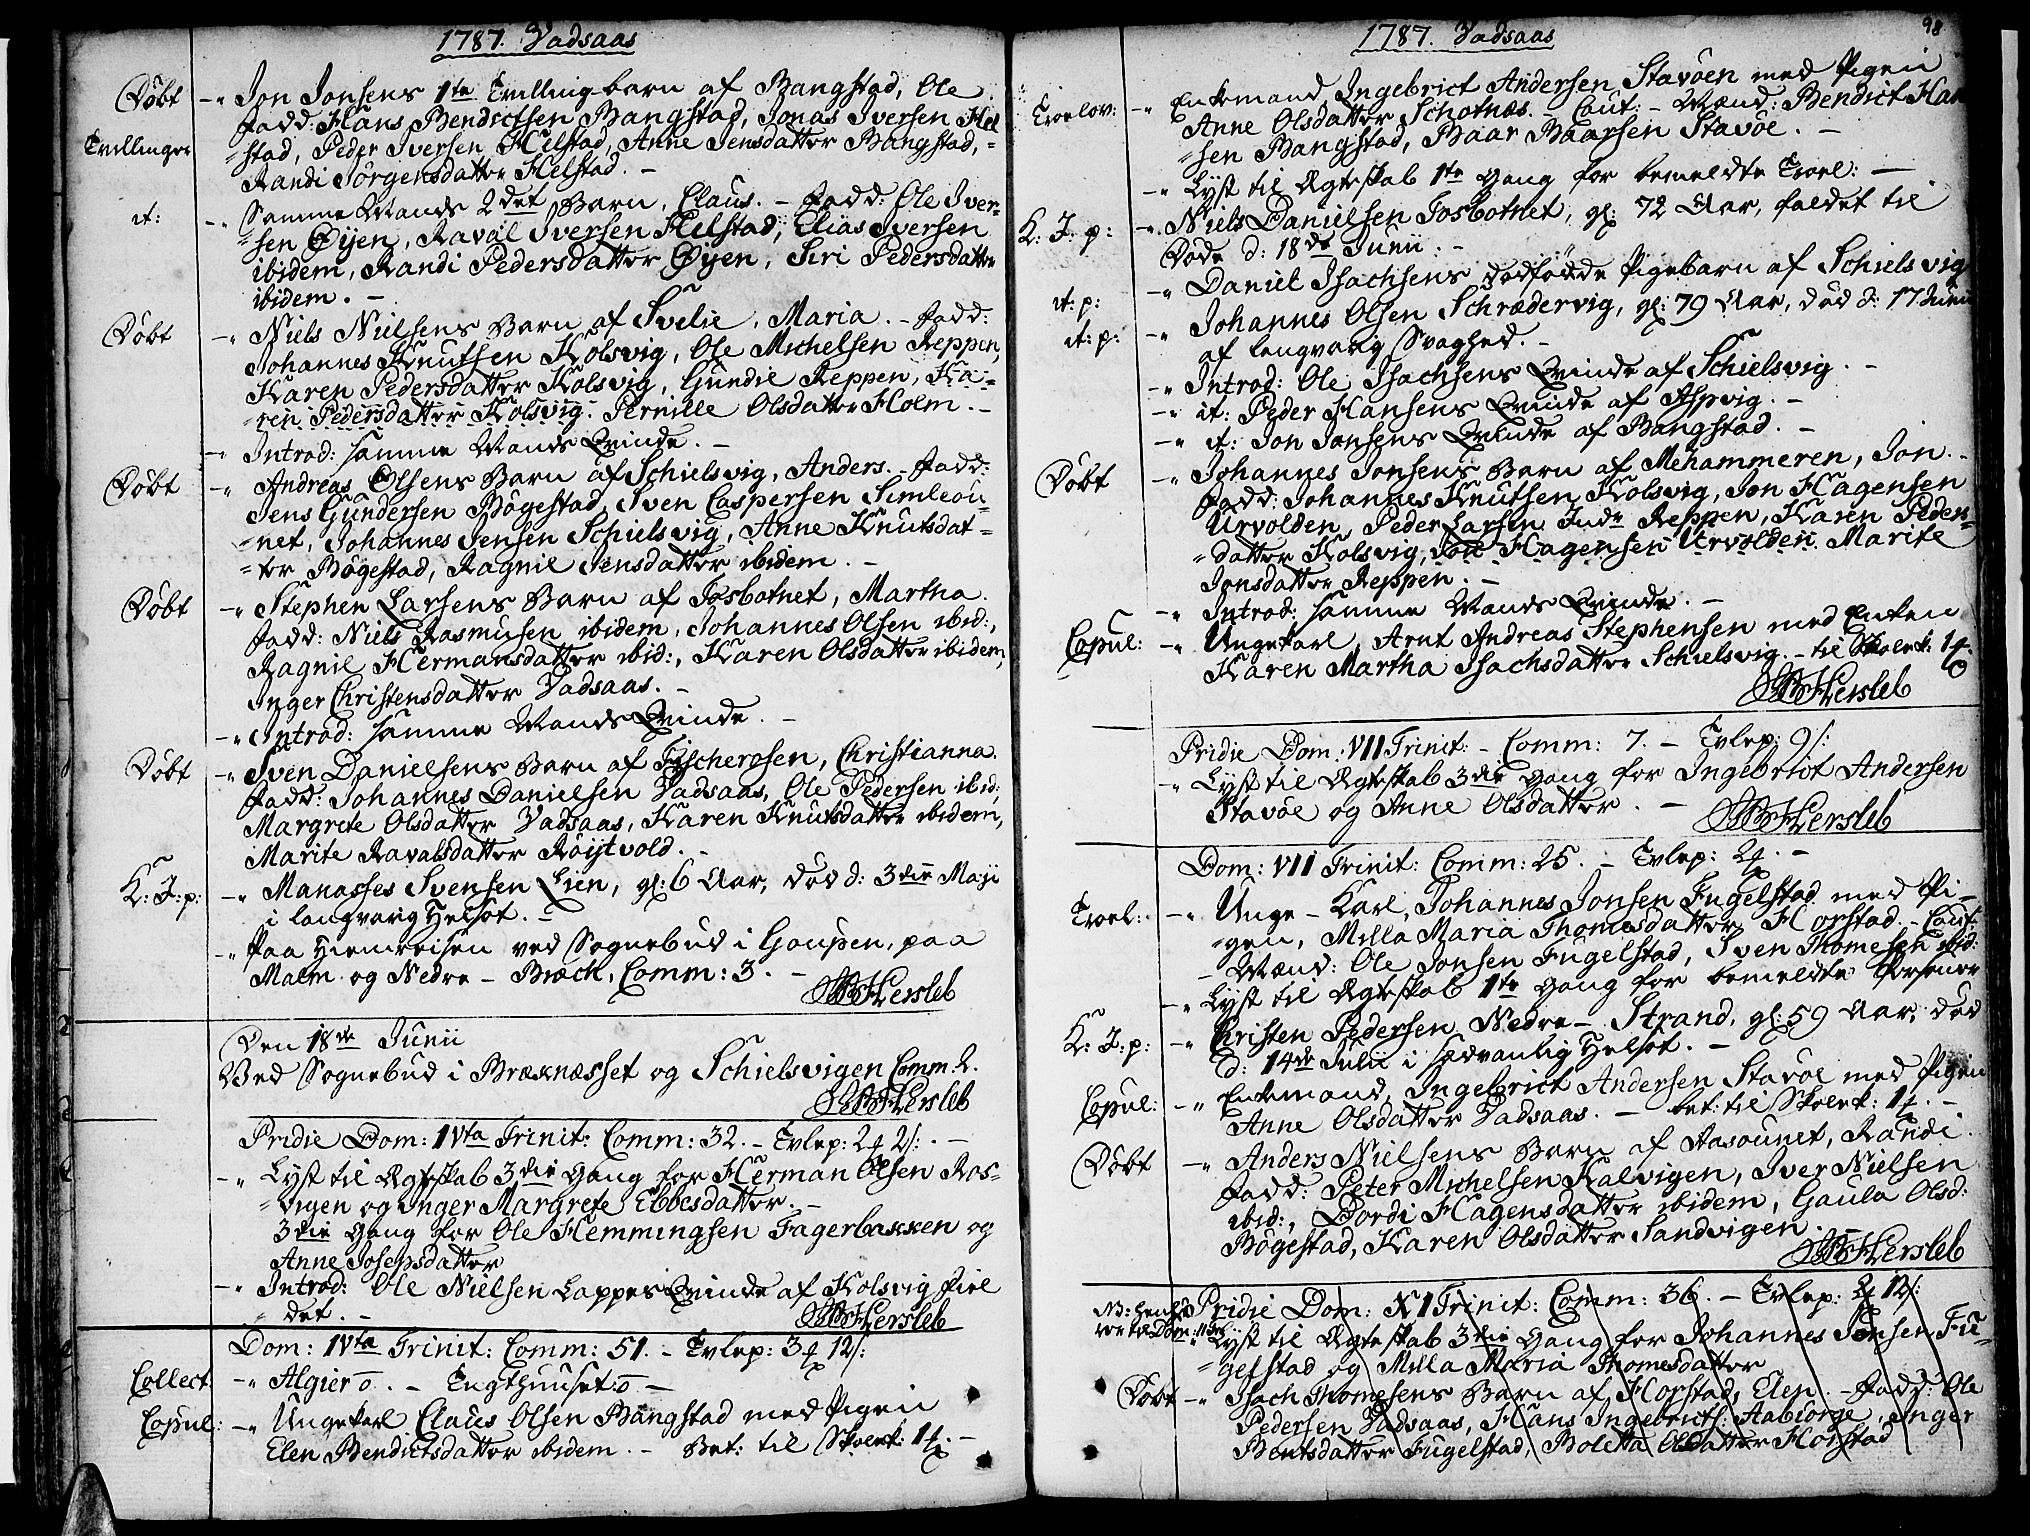 1787. Vadsaas
Döbt -" Jon Jonsens 1te Tvilling-barn af Bangstad, Ole
Fadd: Hans Bendictsen Bangstad, Jonas Iversen Hel
Tvillinger =stad, Peder Iversen Helstad, Anne Jensdatter Bangstad,
Randi Jörgensdatter Helstad. -
it: -" Samme Mands 2det Barn, Claus. - Fadd: Ole Iver=
=sen Öijen, Raval Iversen Helstad, Elias Iversen
ibidem, Randi Pedersdatter Öijen, Siri Pedersdatter
ibidem. -
Döbt -" Niels Nielsens Barn af Svelie, Maria. - Fadd:
Johannes Knutsen Kolsvig, Ole Michelsen Reppen,
Karen Pedersdatter Kolsvig, Gundie Reppen, Ka=
ren Pedersdatter Kolsvig. Pernille Olsdatter Holm. -
-" Introd: samme Mands Qvinde. -
Döbt -" Andreas Olsens Barn af Schielsvig, Anders. - Fadd:
Jens Gundersen Bögestad, Sven Caspersen Simleou=
=net, Johannes Jensen Schielsvig, Anne Knutsdat=
=ter Bögestad, Ragnil Jensdatter ibidem. -
Döbt -" Stephen Larsens Barn af Fosbotnet, Martha.
Fadd: Niels Rasmusen ibidem, Johannes Olsen ibid:,
Ragnil Hermansdatter ibid:, Karen Olsdatter ibidem,
Inger Christensdatter Vadsaas. -
-" Introd: samme Mands Qvinde. -
Döbt -" Sven Danielsens Barn af Fischerosen, Christianna.
Fadd: Johannes Danielsen Vadsaas, Ole Pedersen ibid:
Margrete Olsdatter Vadsaas, Karen Knutsdatter ibidem,
Marite Ravalsdatter Röijtvold. -
K: J: p: -" Manasses Svensen Lien, gl: 6 Aar, död d: 3die Maji
i langvarig Helsot. -
-" Paa Hiemreisen ved Sognebud i Goupen, paa
Malm og Nedre-Bræck, Comm: 3. -
Hersleb
Den 18de Junii
Ved Sognebud i Bræknæsset og Schielsvigen Comm. 2.
Hersleb
Pridie Dom: IVta Trinit: Comm: 32. - Tvlep: 2 2/: -
-" Lyst til Ægteskab 3die Gang for Herman Olsen Ros=
=vigen og Inger Margrete Ebbesdatter. -
3die Gang for Ole Hemmingsen Fagerbakken og
Anne Josepsdatter
-" Introd: Ole Nielsen Lappes Qvinde af Kolsvig Fiel
det. -
Hersleb
Dom: IVta Trinit: Comm: 51. - Tvlep: 3 12/:
Collect -" Algier o. - Tugthuuset: o -
Copul: -" Ungekarl Claus Olsen Bangstad med Pigen
Elen Bendictsdatter ibidem. - Bet: til Skolek: 1 . -
1787. Vadsaas
98
Troelov: -" Enkemand Ingebrict Andersen Stavöen med Pigen
Anne Olsdatter Schotnæs. - Caut: - Mænd: Bendict Han
=sen Bangstad, Baar Baarsen Stavöe. -
-" Lyst til Ægteskab 1te Gang for bemeldte Troel: -
K: J: p: -" Niels Danielsen Fosbotnet, gl: 72 Aar, faldet til
Döde d: 18de Junii. -
it: p: -" Daniel Isachsens dödfödde Pigebarn af Schielsvig
it: p: -" Johannes Olsen Schrædervig, gl: 79 Aar, död d: 17 Junii
af langvarig Svaghed. -
-" Introd: Ole Isachsens Qvinde af Schielsvig. -
-" it: Peder Hansens Qvinde af Aspvig. -
-" it: Jon Jonsens Qvinde af Bangstad. -
Döbt -" Johannes Jonsens Barn af Mehammeren, Jon. -
Fadd: Johannes Knutsen Kolsvig, Jon Hagensen
Urvolden, Peder Larsen Indr Reppen, Karen Peders=
=datter Kolsvig, Jon Hagensen Urvolden. Marite
Jonsdatter Reppen. -
-" Introd: samme Mands Qvinde. -
Copul: -" Ungekarl, Arnt Andreas Stephensen med Enken
Karen Martha Isachsdatter Schielsvig. - til Skolek: 1 .
Hersleb
Pridie Dom: VII Trinit: - Comm: 7. - Tvlep: 9/:
-" Lyst til Ægteskab 3die Gang for Ingebrict Andersen
Stavöe og Anne Olsdatter. -
Hersleb
Dom: VII Trinit: Comm: 25. - Tvlep: 2 . -
Troel: -" Unge-Karl, Johannes Jonsen Fugelstad med Pi=
=gen, Milla Maria Thomesdatter Horstad - Caut:
- Mænd: Ole Jonsen Fugelstad, Sven Thomesen ibid:
-" Lyst til Ægteskab 1te Gang for bemeldte Personer
K: J: p: -" Christen Pedersen Nedre-Strand, gl: 59 Aar, död
d: 14de Julii i sædvanlig Helsot. -
Copul: -" Enkemand, Ingebrict Andersen Stavöe med Pigen
Anne Olsdatter Vadsaas. - bet: til Skolek: 1 . -
Döbt -" Anders Nielsens Barn af Aasounet, Randi.
Fadd: Peter Michelsen Kalvigen, Iver Nielsen
ibid:, Dordi Hagensdatter ibidem, Gaula Olsd:
Bögestad, Karen Olsdatter Sandvigen. -
Hersleb
Pridie Dom: XI Trinit: Comm: 36. - Tvlep: 2 12/:
-" Lyst til Ægteskab 3die Gang for Johannes Jonsen Fu=
=gelstad og Milla Maria Thomesdatter
Döbt -" Isach Thomesens Barn af Horstad, Elen. - Fadd: Ole
Pedersen Vadsaas, Hans Ingebricts: Aabiorge, Inger
Bentsdatter Fugelstad, Boletta Olsdatter Horstad